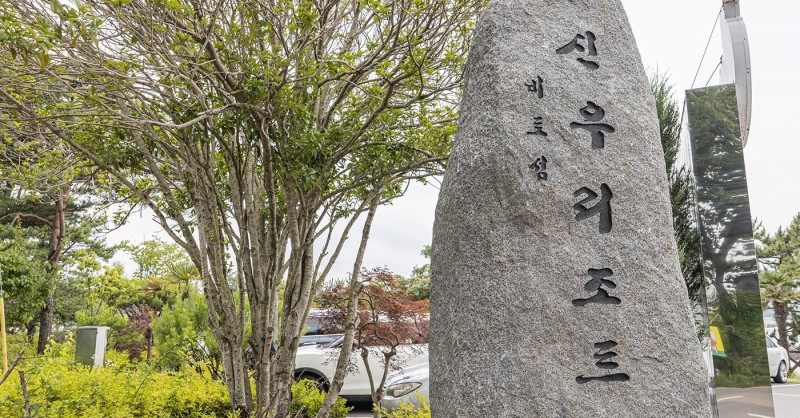 비토섬
신우리조트